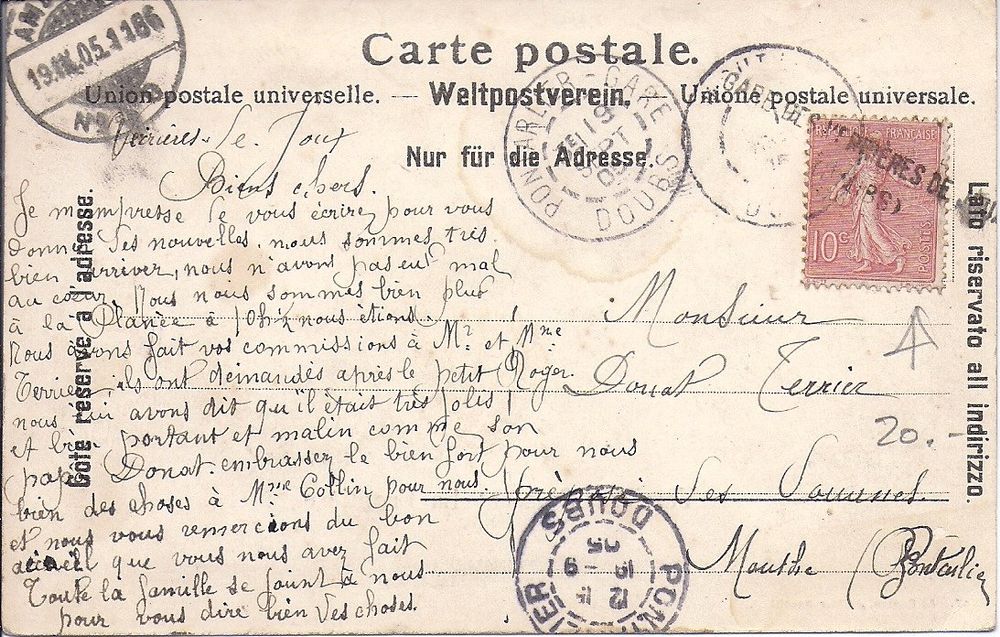 Carte postale.
Union postale universelle. — Weltpostverein. — Unione postale universale.
Nur für die Adresse.
Côté réservé à l'adresse.
Lato riservato all indirizzo.
19.IX.05.11
PONTARLIER-GARE
19
05
DOUBS
GARE DES VERRIÈRES DE
(DOUBS)
FRANÇAISE
10c
POSTES
Verrières-de-Joux
Biens chers.
Je m'empresse de vous écrire pour vous
donner des nouvelles, nous sommes très
bien arriver, nous n'avons pas eut mal
au cœur. Nous nous sommes bien plus
à la Planée à 10h½ nous étions.
Nous avons fait vos commissions à Mr et Mme
Terrier, ils ont demandés après le petit Roger
nous lui avons dit qu'il était très jolis!
et bien portant et malin comme son
papa Donat. embrassez le bien fort pour nous
bien des choses à Mme Collin pour nous
et nous vous remercions du bon
accueil que vous nous avez fait
Toute la famille se joint à nous
pour vous dire bien des choses.
Monsieur
Donat Terrier
préposé des Douanes
Mouthe (Pontarlier
20.-
PONTARLIER
DOUBS